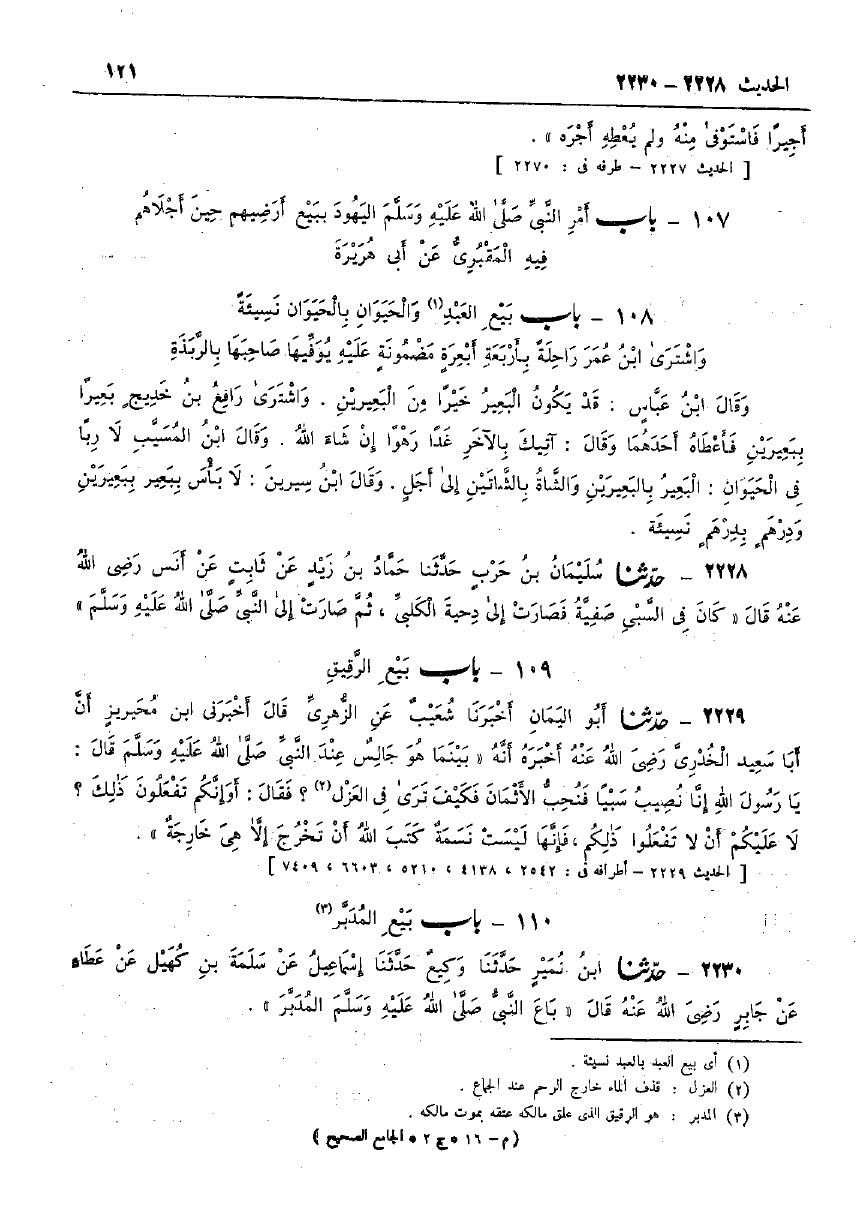 الحديث ٢٢٢٨ – ٢٢٣٠
١٢١
أَجِيرًا فَاسْتَوْفىٰ مِنْهُ ولم يُعْطِهِ أَجْرَه » .
[ الحديث ٢٢٢٧ – طرفه فى : ٢٢٧٠ ]
١٠٧ – باب أَمْرِ النَّبيِّ صَلَّىٰ اللهُ عَلَيْهِ وَسَلَّمَ اليَهُودَ بِبَيْعِ أَرَضِيهِم حِينَ أَجْلَاهُم
فِيهِ الْمَقْبُرِىُّ عَنْ أَبى هُرَيْرَةَ
١٠٨ – باب بَيْعِ العَبْدِ(١) وَالْحَيَوَانِ بِالْحَيَوَان نَسِيئَةً
وَاشْتَرَىٰ ابْنُ عُمَرَ رَاحِلَةً بِأَرْبَعَةِ أَبْعِرَةٍ مَضْمُونَةٍ عَلَيْهِ يُوَفِّيهَا صَاحِبَهَا بِالرَّبَذَةِ
وَقَالَ ابْنُ عَبَّاسٍ : قَدْ يَكُونُ الْبَعِيرُ خَيْرًا مِنَ الْبَعِيرينِ . وَاشْتَرَىٰ رَافِعُ بنُ خَدِيجٍ بَعِيرًا
بِبَعِيرَيْنِ فَأَعْطَاهُ أَحَدَهُمَا وَقَالَ : آتِيكَ بِالآخَرِ غَدًا رَهْوًا إِنْ شَاءَ اللهُ . وَقَالَ ابْنُ المُسَيَّبِ لَا رِبَا
فِى الْحَيَوَانِ : الْبَعِيرُ بِالْبَعِيرَيْنِ وَالشَّاةُ بِالشَّاتَيْنِ إِلىٰ أَجَلٍ . وَقَالَ ابْنُ سِيرِينَ : لَا بَأْسَ بِبَعِيرٍ بِبَعِيرَيْنِ
وَدِرْهَمٍ بِدِرْهَمٍ نَسِيئَةً .
٢٢٢٨ – حدّثنا سُلَيْمَانُ بنُ حَرْبٍ حَدَّثَنا حَمَّادُ بنُ زَيْدٍ عَنْ ثَابِتٍ عَنْ أَنَسٍ رَضِىَ اللهُ
عَنْهُ قَالَ « كَانَ فى السَّبْيِ صَفِيَّةُ فَصَارَتْ إِلىٰ دِحيةَ الْكَلبيِّ ، ثُمَّ صَارَتْ إِلىٰ النَّبيِّ صَلَّىٰ اللهُ عَلَيْهِ وَسَلَّمَ »
١٠٩ – باب بَيْعِ الرَّقِيقِ
٢٢٢٩ – حدّثنا أَبُو اليَمَانِ أَخْبَرَنَا شُعَيْبٌ عَنِ الزُّهرِىِّ قَالَ أَخْبَرَنى ابن مُحَيريزٍ أَنَّ
أَبَا سَعِيد الْخُدْرِىَّ رَضِىَ اللهُ عَنْهُ أَخْبَرَهُ أَنَّهُ « بَيْنَمَا هو جَالِسٌ عِنْدَ النَّبيِّ صَلَّىٰ اللهُ عَلَيْهِ وَسَلَّمَ قَالَ :
يَا رَسُولَ اللهِ إِنَّا نُصِيبُ سَبْيًا فَنُحِبُّ الأَثْمَانَ فَكَيْفَ تَرَىٰ فى العَزْلِ(٢) ؟ فَقَالَ : أَوَإِنَّكُم تَفْعَلُونَ ذٰلِكَ ؟
لَا عَلَيْكُمْ أَنْ لَا تَفْعَلُوا ذٰلِكُم ، فَإِنَّهَا لَيْسَتْ نَسَمَةٌ كَتَبَ اللهُ أَنْ تَخْرُجَ إِلَّا هِىَ خَارِجَةٌ » .
[ الحديث ٢٢٢٩ – أطرافه فى : ٢٥٤٢ ، ٤١٣٨ ، ٥٢١٠ ، ٦٦٠٣ ، ٧٤٠٩ ]
١١٠ – باب بَيْعِ المُدَبَّرِ(٣)
٢٢٣٠ – حدّثنا ابنُ نُمَيْرٍ حَدَّثَنَا وَكِيعٌ حَدَّثَنَا إِسْمَاعِيلُ عَنْ سَلَمَةَ بنِ كُهَيْلٍ عَنْ عَطَاءٍ
عَنْ جَابِرٍ رَضِىَ اللهُ عَنْهُ قَالَ « بَاعَ النَّبيُّ صَلَّىٰ اللهُ عَلَيْهِ وَسَلَّمَ المُدَبَّرَ » .
(١) أى بيع العبد بالعبد نسيئة .
(٢) العزل : قذف الماء خارج الرحم عند الجماع .
(٣) المدبر : هو الرقيق الذى علق مالكه عتقه بموت مالكه .
( م – ١٦ * ج ٢ * الجامع الصحيح )